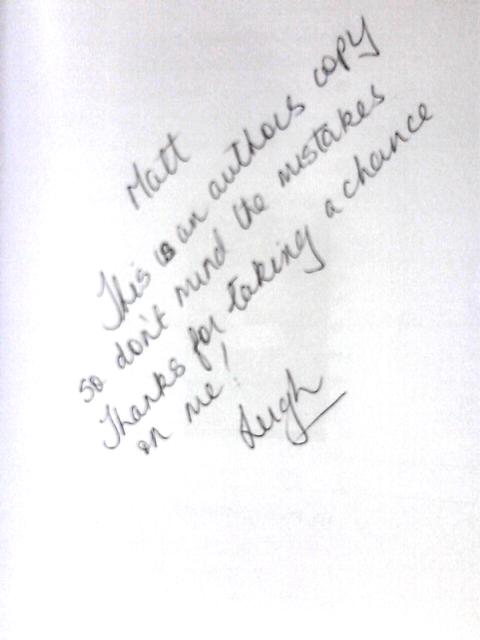 Matt
This is an authors copy
so don't mind the mistakes
Thanks for taking a chance
on me!
Leigh